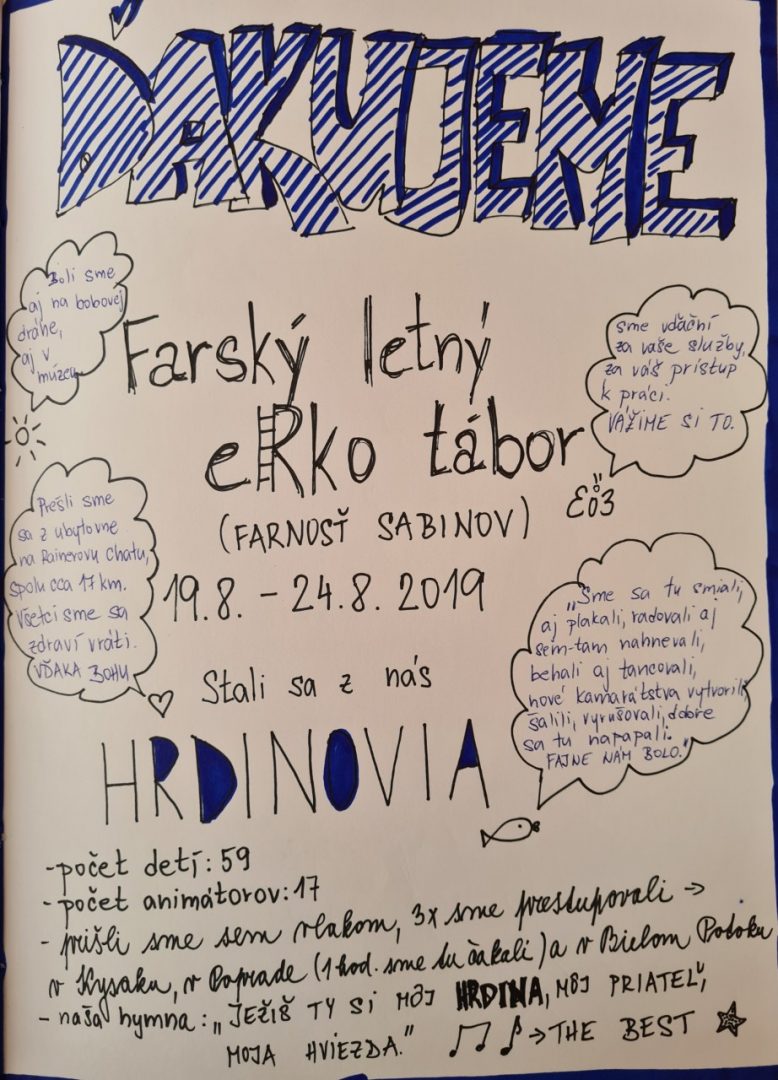 ĎAKUJEME
Boli sme
aj na bobovej
dráhe,
aj v
múzeu
Farský letný
eRko tábor
(FARNOSŤ SABINOV)
19.8. - 24.8. 2019
sme vďační
za vaše služby,
za váš prístup
k práci.
VÁŽIME SI TO.
Prešli sme
sa z ubytovne
na Rainerovu chatu,
spolu cca 17 km.
Všetci sme sa
zdraví vráti.
VĎAKA BOHU
„Sme sa tu smiali,
aj plakali, radovali aj
sem-tam nahnevali,
behali aj tancovali,
nové kamarátstva vytvorili,
šalili, vyrušovali, dobre
sa tu napapali.
FAJNE NÁM BOLO."
Stali sa z nás
HRDINOVIA
- počet detí: 59
- počet animátorov: 17
- prišli sme sem vlakom, 3x sme prestupovali →
v Kysaku, v Poprade (1 hod. sme tu čakali) a v Bielom Potoku
- naša hymna: „JEŽIŠ TY SI MÔJ HRDINA, MÔJ PRIATEĽ,
MOJA HVIEZDA." → THE BEST